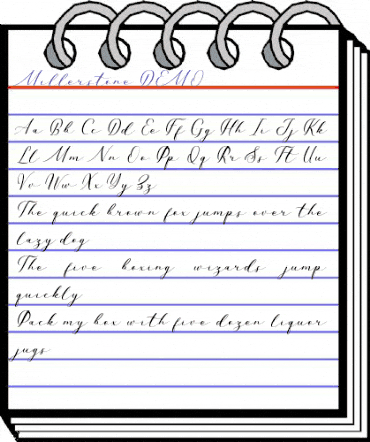 Millerstone DEMO
Aa Bb Cc Dd Ee Ff Gg Hh Ii Jj Kk
Ll Mm Nn Oo Pp Qq Rr Ss Tt Uu
Vv Ww Xx Yy Zz
The quick brown fox jumps over the
lazy dog
The five boxing wizards jump
quickly
Pack my box with five dozen liquor
jugs